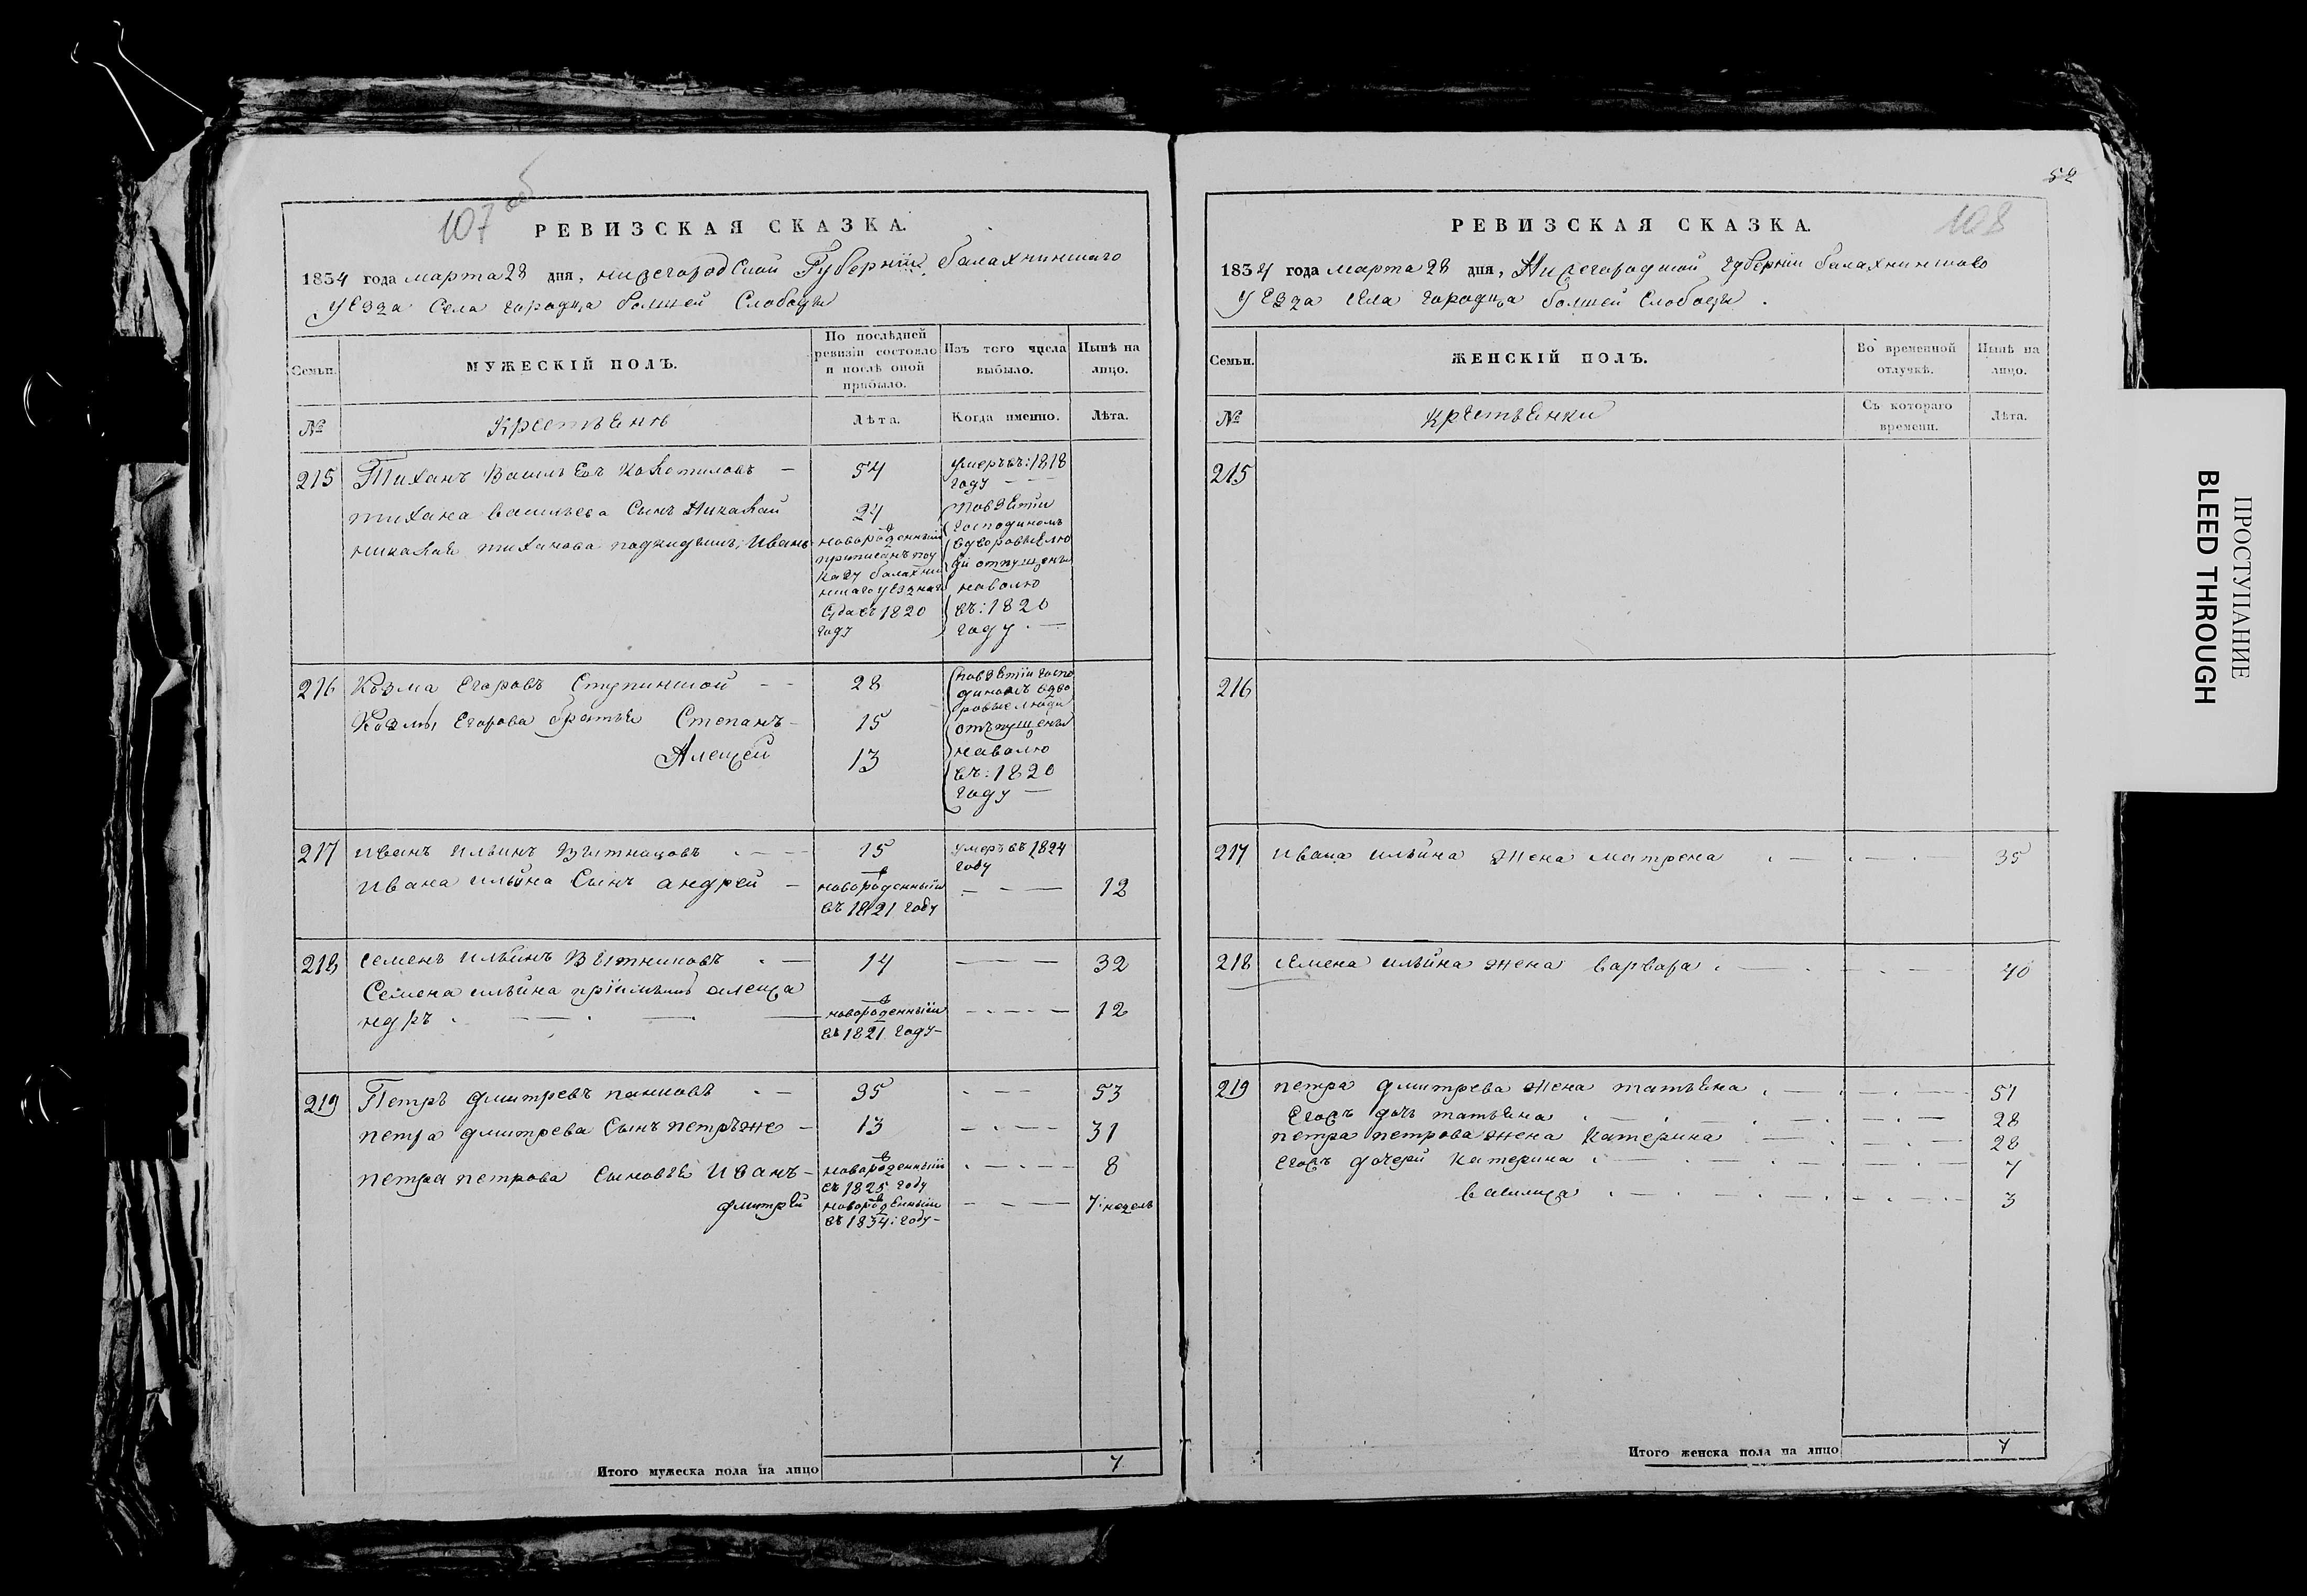 107 об
РЕВИЗСКАЯ СКАЗКА.
1834 года марта 28 дня, нижегородской Губернїи, балахнинскаго
уезда Села городца болшей Слободы
Семьи.
МУЖЕСКІЙ ПОЛЪ.
По послѣдней
ревизіи состояло
и послѣ оной
прибыло.
Изъ того числа
выбыло.
Нынѣ на
лицо.
№
Крестьенѣ
Лѣта.
Когда именно.
Лѣта.
215
Тиханъ Василь Евъ —
54
Умеръ въ: 1818
году — —
тихана васильева Сынъ Николай
24
новорожденный
приписанъ по у
казу балахни
нскаго уезднаго
Суда въ 1820
году
николая тиханова подкидышъ, Иванъ
повзетїи
господиномъ
вдворовые лю
ди отпущены
наволю
въ: 1820
году. —
216
Козма Егоровъ Ступинской — —
28
Козмы Егорова братьи Степанъ —
15
Алексей
13
повзетїи госпо
диномъ вдво
ровые люди
отъпущены
наволю
въ: 1820
году —
217
иванъ ильинъ . — —
15
умеръ въ 1824
году
ивана ильина Сынъ андрей —
новорожденный
въ 1821 году
— — —
12
218
семенъ ильинъ Ветниковъ . —
14
— — —
32
Семена ильина прїимышъ алекса
ндръ . — . — —
новорожденный
въ 1821 году —
— . — . — —
12
219
Петръ дмитревъ панковъ . —
35
. — —
53
петра дмитрева Сынъ петръ же —
13
— . — —
31
петра петрова Сыновье Иванъ —
новорожденный
въ 1825 году
. — . — —
8
дмитрей
новорожденный
въ 1834: году —
— — — —
7 недель
Итого мужеска пола на лицо
7
52
108
РЕВИЗСКАЯ СКАЗКА.
1834 года марта 28 дня, Нижегородской губернїи балахнинскаго
уезда села городца болшей Слободы .
Семьи.
ЖЕНСКІЙ ПОЛЪ.
Во временной
отлучкѣ.
Нынѣ на
лицо.
№
крестьенки
Съ котораго
времени.
Лѣта.
215
216
217
ивана ильина жена матрена . — . — . —
35
218
семена ильина жена варвара . — . — . —
40
219
петра дмитрева жена татьена . — . — . —
51
Егожъ дочь татьена . — . — . —
28
петра петрова жена катерина . — . — . —
28
егожъ дочери катерина . — . — . —
7
василиса . — . — . —
3
Итого женска пола на лицо
7
ПРОСТУПАНИЕ
BLEED THROUGH